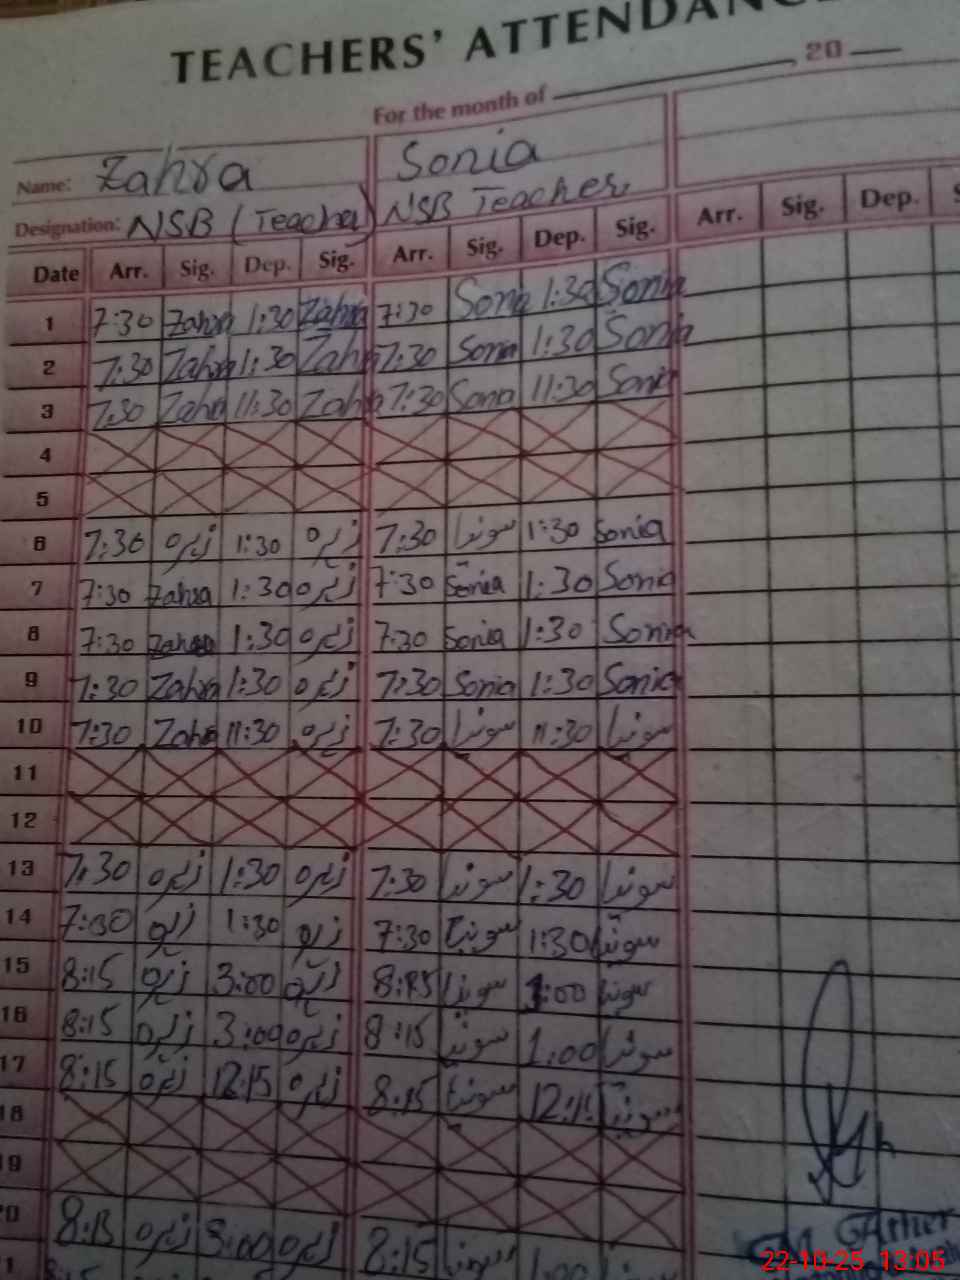 TEACHERS' ATTENDANC
For the month of 20
Name: Zahra Sonia
Designation: NSB (Teacher) NSB Teacher
Date Arr. Sig. Dep. Sig. Arr. Sig. Dep. Sig. Arr. Sig. Dep. S
1 7:30 Zahra 1:30 Zahra 7:30 Sonia 1:30 Sonia
2 7:30 Zahra 1:30 Zah 7:30 Sonia 1:30 Sonia
3 7:30 Zahra 11:30 Zah 7:30 Sonia 11:30 Sonia
4
5
6 7:30 زہرہ 1:30 زہرہ 7:30 سونیا 1:30 Sonia
7 7:30 Zahra 1:30 زہرہ 7:30 Sonia 1:30 Sonia
8 7:30 Zahra 1:30 زہرہ 7:30 Sonia 1:30 Sonia
9 7:30 Zahra 1:30 زہرہ 7:30 Sonia 1:30 Sonia
10 7:30 Zahra 11:30 زہرہ 7:30 سونیا 11:30 سونیا
11
12
13 7:30 زہرہ 1:30 زہرہ 7:30 سونیا 1:30 سونیا
14 7:30 زہرہ 1:30 زہرہ 7:30 سونیا 1:30 سونیا
15 8:15 زہرہ 3:00 زہرہ 8:15 سونیا 1:00 سونیا
16 8:15 زہرہ 3:00 زہرہ 8:15 سونیا 1:00 سونیا
17 8:15 زہرہ 12:15 زہرہ 8:15 سونیا سونیا
18
19
20 8:15 زہرہ 3:00 زہرہ 8:15 سونیا
22-10-25 13:05